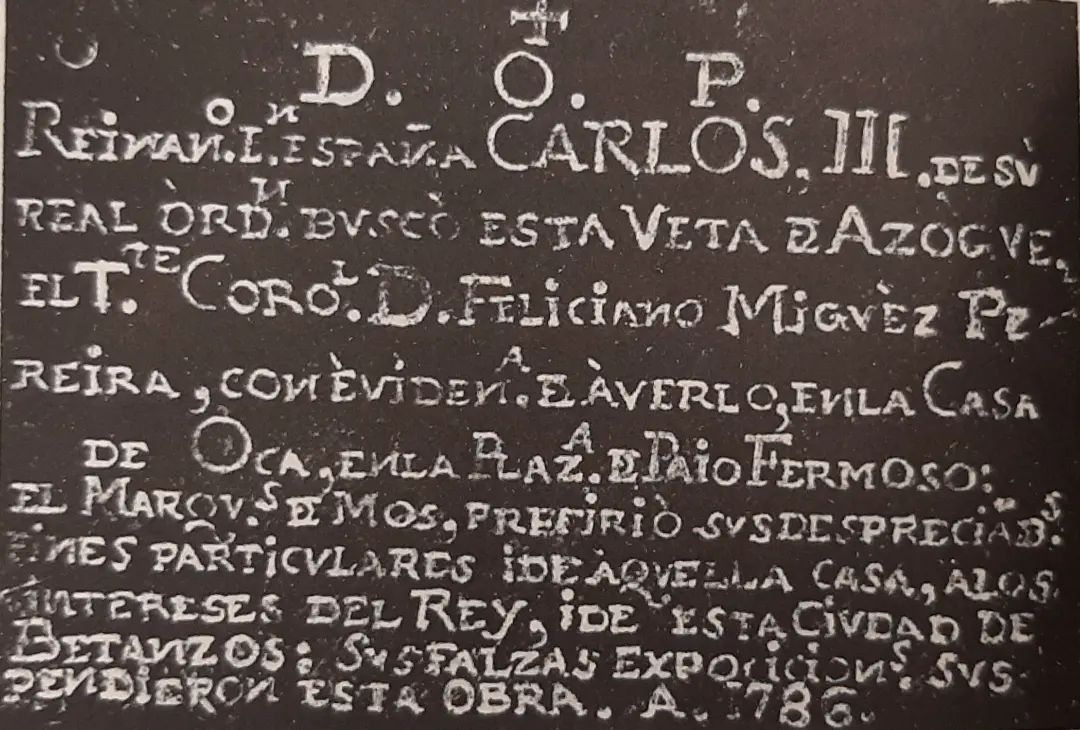 D. O. P.
REINAN.ᴼ I.ᴺ ESPAÑA CARLOS, III. DE SÙ
REAL ÒRD.ᴺ BVSCÒ ESTA VETA Đ AZOGVE,
EL T.ᵀᴱ CORO.ᴸ D. FELICIANO MIGVÈZ PE-
REIRA, CON ÈVIDEN.ᴬ Đ ÀVERLO, EN LA CASA
DE OCA, EN LA PLAZ.ᴬ Đ PAIO FERMOSO:
EL MARQV.ˢ Đ MOS, PREFIRIÒ SVS DESPRECIAD.ˢ
FINES PARTICVLARES I DE ÀQVELLA CASA, A LOS
INTERESES DEL REY, I DE ESTA CIVDAD DE
BETANZOS: SVS FALZAS EXPOCICION.ˢ SVS
PENDIERON ESTA OBRA. A. 1786.